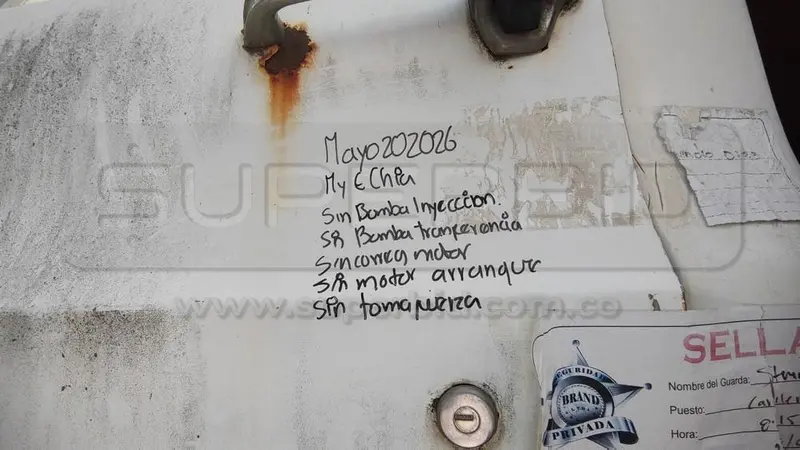 Mayo202026
My E Chia
Sin Bomba Inyeccion.
Sin Bomba tranferencia
Sin correa motor
Sin motor arranque
Sin tomafuerza
SUPERBID
www.superbid.com.co
SELLA
SEGURIDAD
BRAND
LTDA
PRIVADA
Nombre del Guarda:
Puesto:
Hora: 8:15